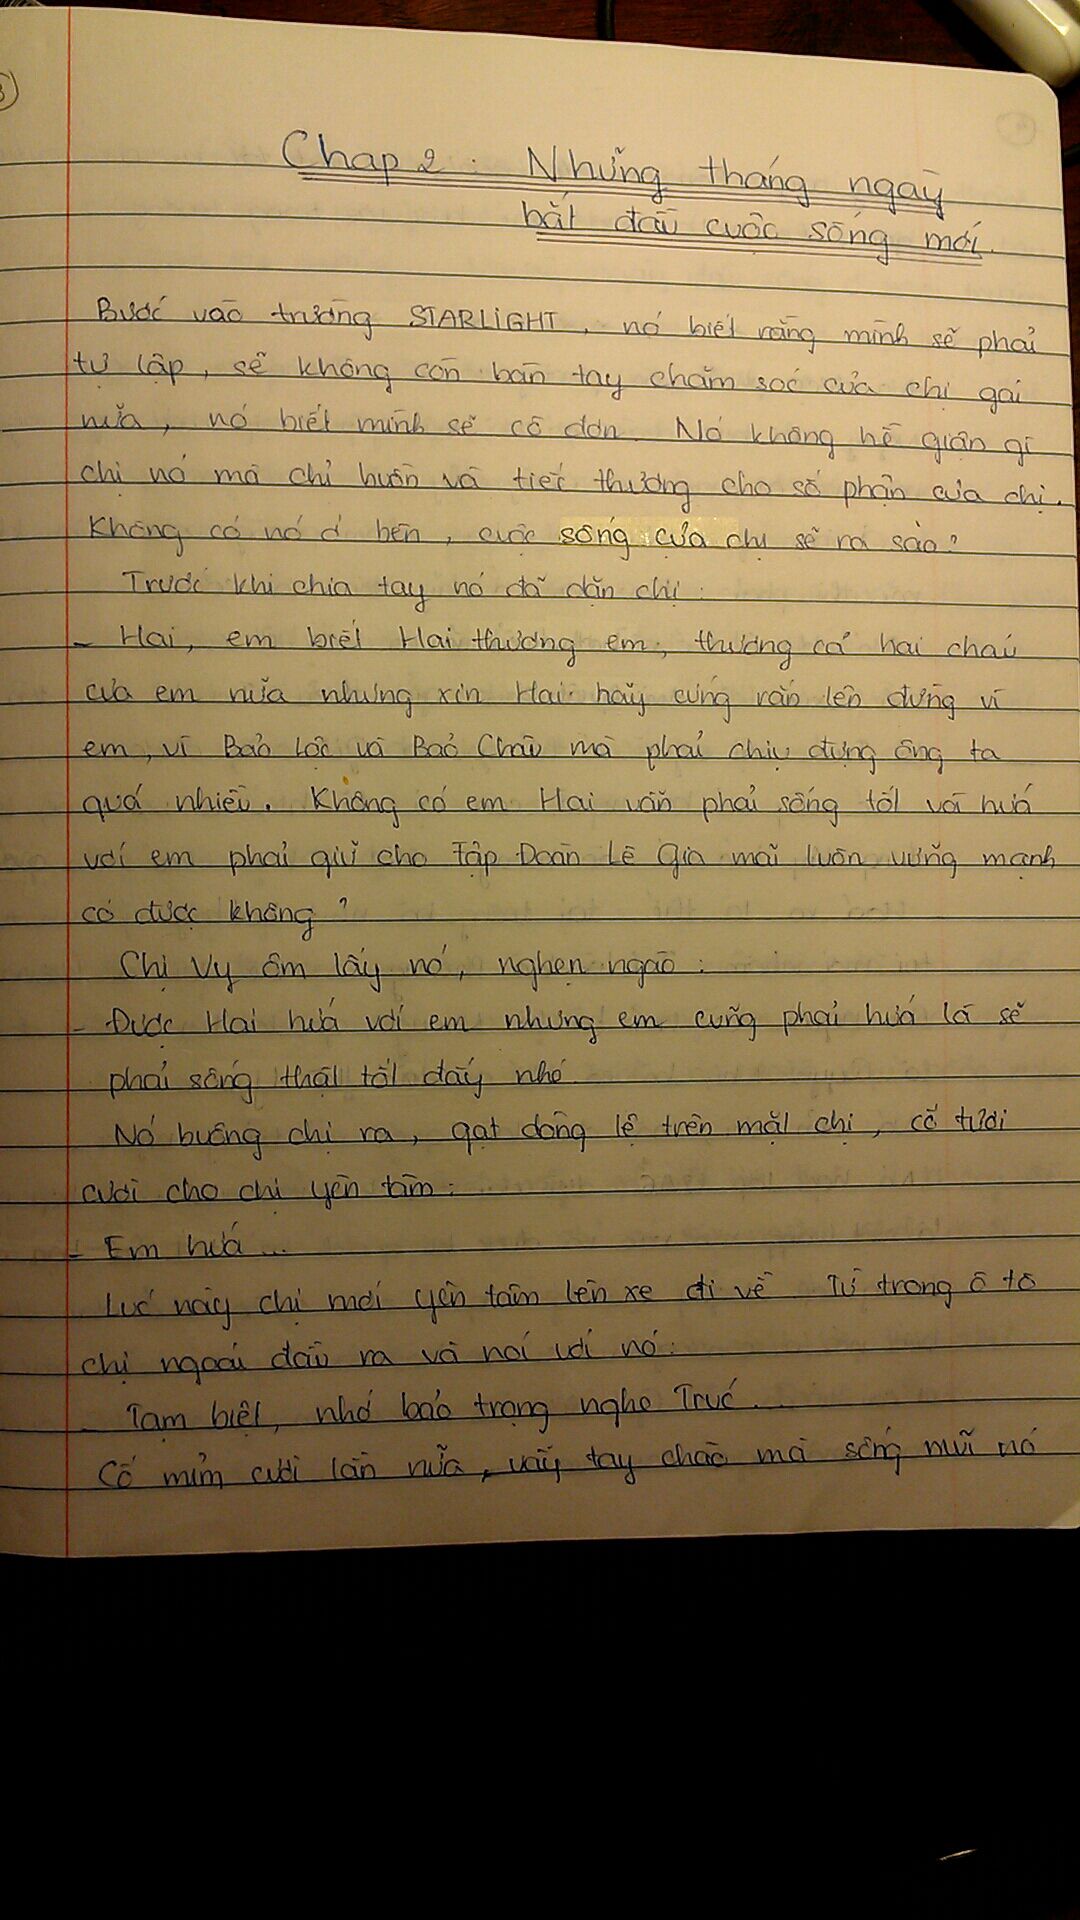 Chap 2 : Những tháng ngày
bắt đầu cuộc sống mới.
Bước vào trường STARLIGHT, nó biết rằng mình sẽ phải
tự lập, sẽ không còn bàn tay chăm sóc của chị gái
nữa, nó biết mình sẽ cô đơn. Nó không hề giận gì
chị nó mà chỉ buồn và tiếc thương cho số phận của chị.
Không có nó ở bên, cuộc sống của chị sẽ ra sao?
Trước khi chia tay nó đã dặn chị:
- Hai, em biết Hai thương em, thương cả hai cháu
của em nữa nhưng xin Hai hãy cứng rắn lên đừng vì
em, vì Bảo Lộc và Bảo Châu mà phải chịu đựng ông ta
quá nhiều. Không có em Hai vẫn phải sống tốt và hứa
với em phải giữ cho Tập Đoàn Lê Gia mãi luôn vững mạnh
có được không?
Chị Vy ôm lấy nó, nghẹn ngào:
- Được Hai hứa với em nhưng em cũng phải hứa là sẽ
phải sống thật tốt đấy nhé
Nó buông chị ra, gạt dòng lệ trên mặt chị, cố tươi
cười cho chị yên tâm:
- Em hứa...
Lúc này chị mới yên tâm lên xe đi về. Từ trong ô tô
chị ngoái đầu ra và nói với nó:
- Tạm biệt, nhớ bảo trọng nghe Trúc...
Cố mỉm cười lần nữa, vẫy tay chào mà sống mũi nó